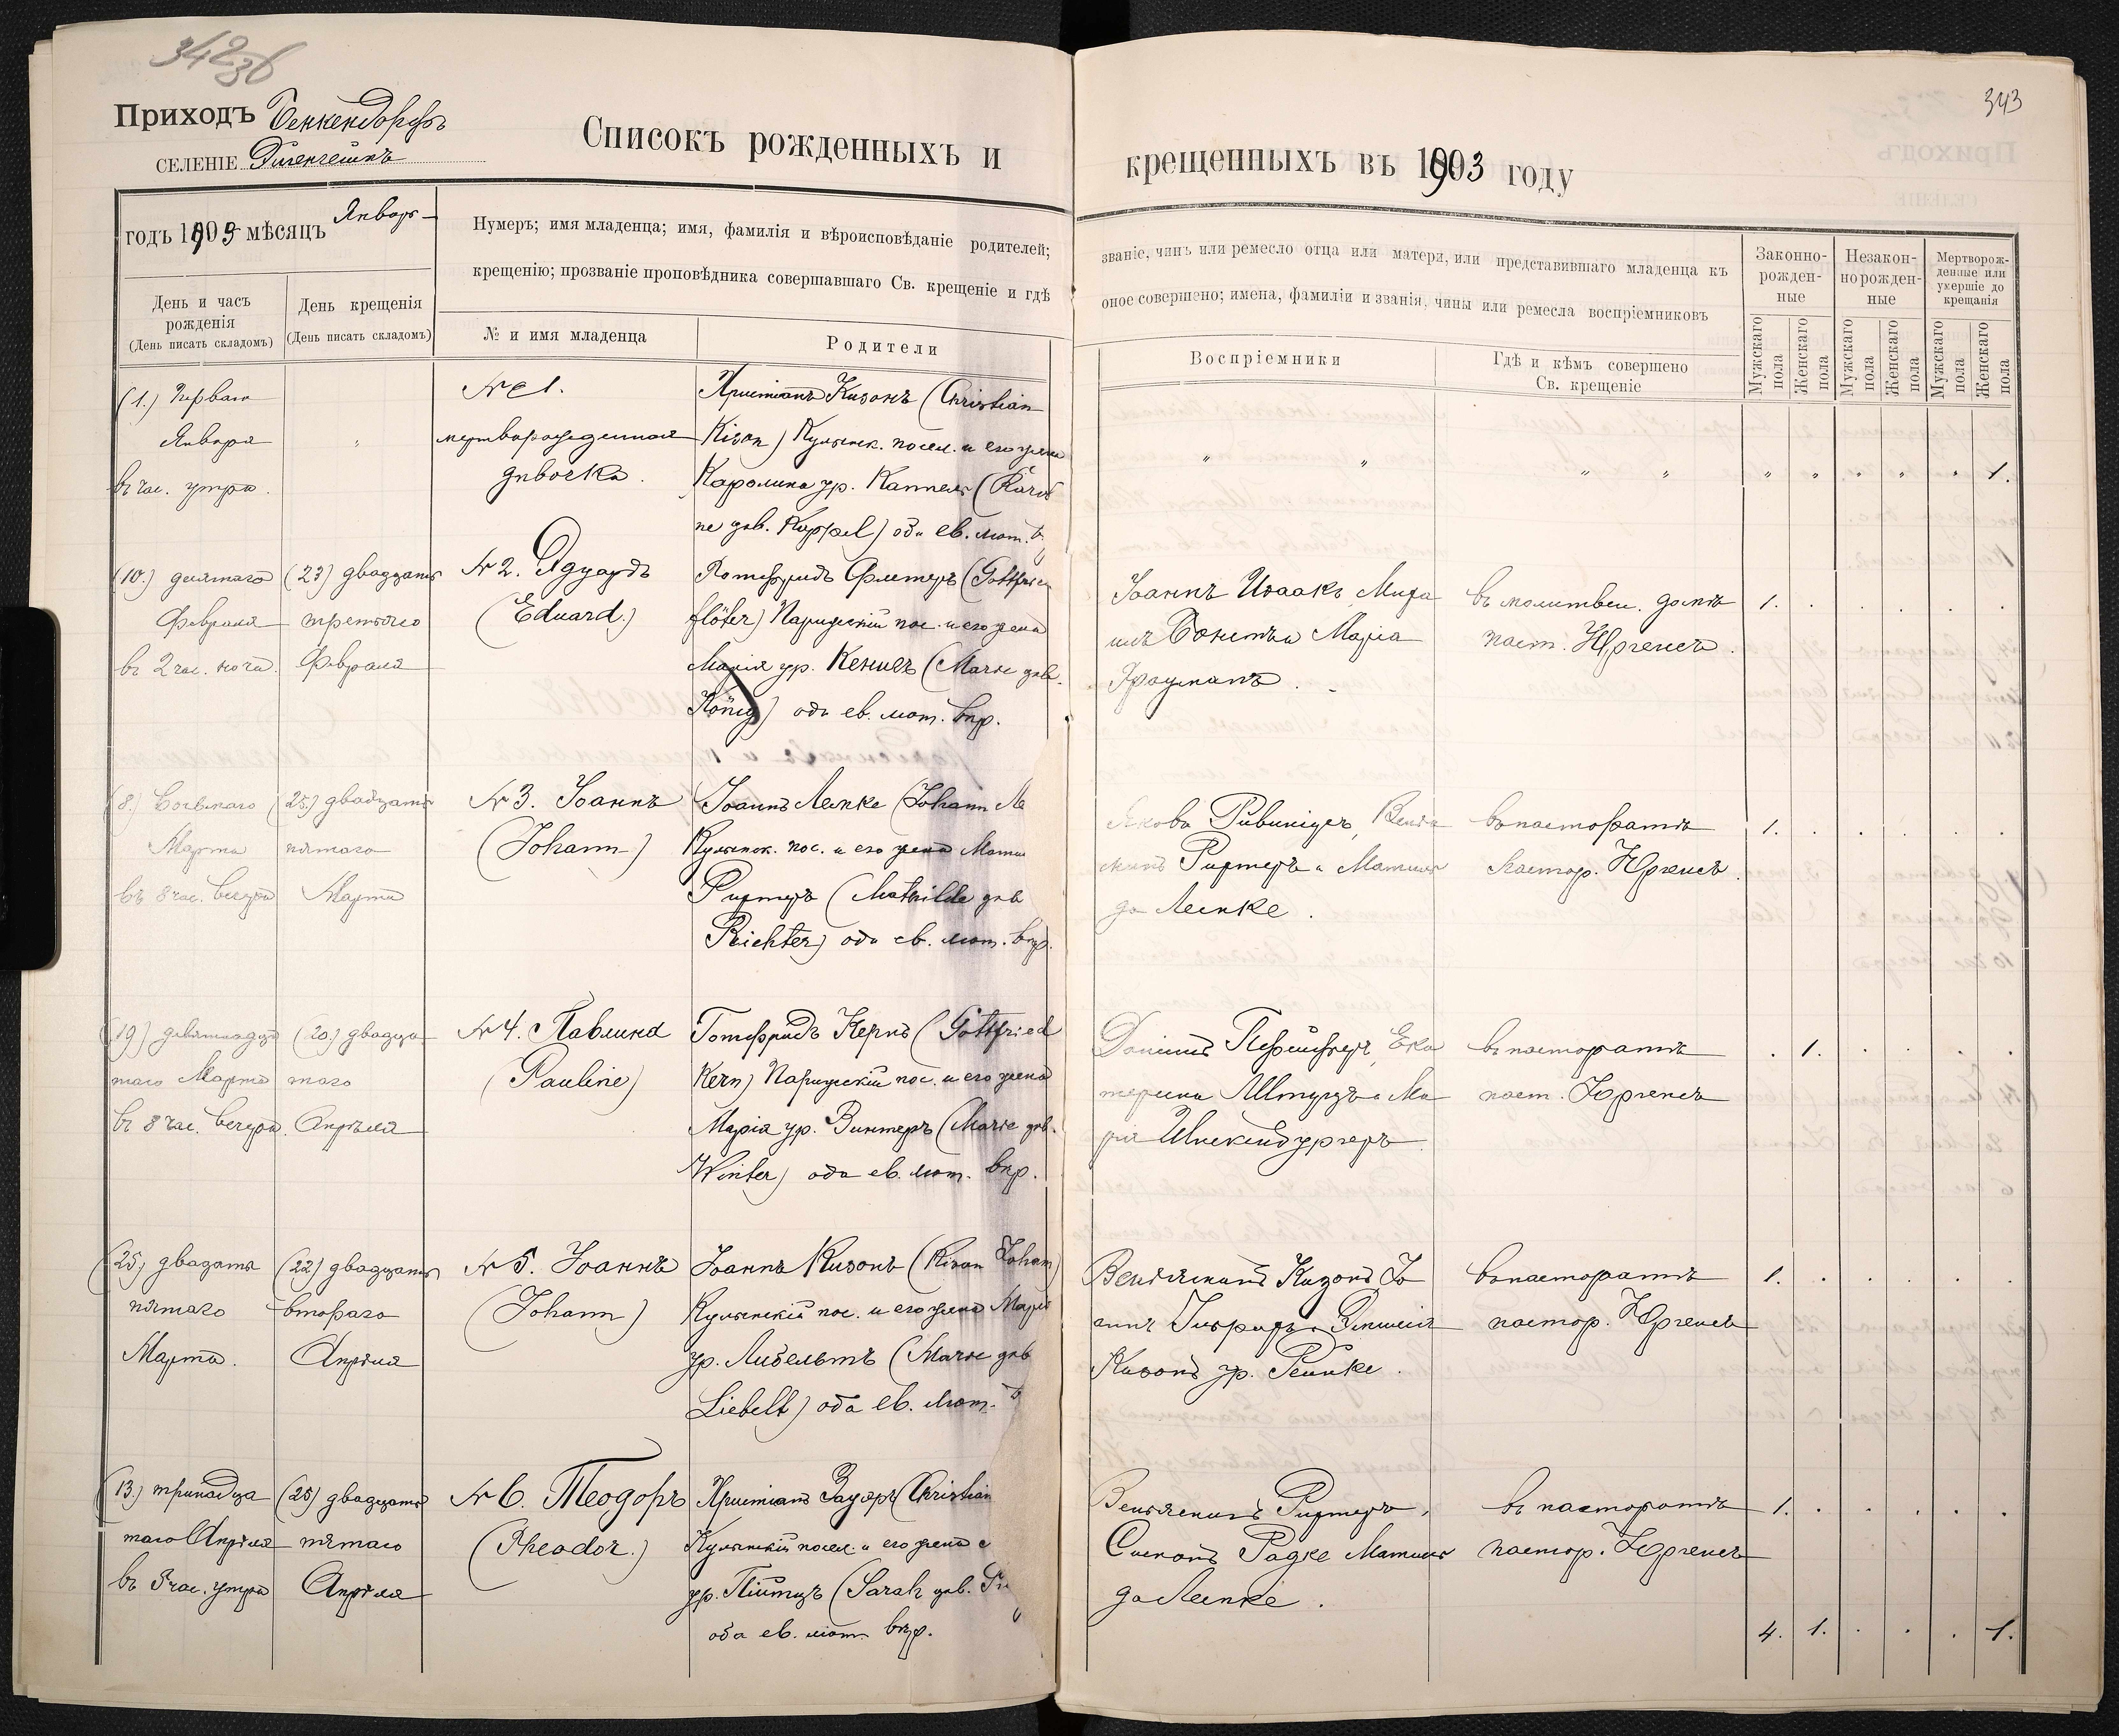 342
36
343
Приходъ Бенкендорфъ
СЕЛЕНІЕ
Списокъ рожденныхъ и
крещенныхъ въ 1903 году
годъ 1903 мѣсяцъ Январь
Нумеръ; имя младенца; имя, фамилія и вѣроисповѣданіе родителей;
крещенію; прозваніе проповѣдника совершавшаго Св. крещеніе и гдѣ
званіе, чинъ или ремесло отца или матери, или представившаго младенца къ
оное совершено; имена, фамиліи и званія, чины или ремесла воспріемниковъ
День и часъ
рожденія
(День писать складомъ)
День крещенія
(День писать складомъ)
№ и имя младенца
Родители
Воспріемники
Гдѣ и кѣмъ совершено
Св. крещеніе
Законно-
рожден-
ные
Незакон-
норожден-
ные
Мертворож-
денные или
умершіе до
крещанія
Мужскаго
пола
Женскаго
пола
Мужскаго
пола
Женскаго
пола
Мужскаго
пола
Женскаго
пола
(1.) Перваго
Января
въ час. утра.
№ 1.
мертворожденная
дѣвочка.
Христіанъ Кизонъ (Christian
Kison) Кульмск. посел. и его жена
Каролина ур. Каппель (Karoli
ne geb. Kappel) оба ев. лют. в.
1.
(10.) десятаго
Февраля
въ 2 час. ночи.
(23) двадцать
третьяго
Февраля
№ 2. Эдуардъ
(Eduard.)
Готфридъ Флетеръ (Gottfried
Flöter) Парижскій пос. и его жена
Марія ур. Кенигъ (Marie geb.
König) оба ев. лют. вѣр.
Іоаннъ Исаакъ,
Марія
въ молитвен. домѣ
паст. Юргенсъ.
1.
(8.) Восьмаго
Марта
въ 8 час. вечера
(25.) двадцать
пятаго
Марта
№ 3. Іоаннъ
(Johann)
Іоаннъ Лемке (Johann Le
Кульмск. пос. и его жена Матил
Рихтеръ (Mathilde geb
Richter) оба ев. лют. вѣр.
Якова
Рихтеръ и Матиль
да Лемке.
въ пасторатѣ
пастор. Юргенсъ.
1.
(19) девятнадца
таго Марта
въ 8 час. вечера.
(20.) двадца
таго
Апрѣля
№ 4. Павлина
(Pauline)
Готфридъ Кернъ (Gottfried
Kern) Парижскій пос. и его жена
Марія ур. Винтеръ (Marie geb.
Winter) оба ев. лют. вѣр.
Ека
терина Ма
рія
въ пасторатѣ
паст. Юргенсъ
1.
(25.) двадцать
пятаго
Марта.
(22) двадцать
втораго
Апрѣля
№ 5. Іоаннъ
(Johann)
Іоаннъ Кизонъ (Kison Johann)
Кульмскій пос. и его жена Марія
ур. Либельтъ (Marie geb
Liebelt) оба ев. лют. в
Веніяминъ Кизонъ Іо
аннъ
Кизонъ ур. Рейнке.
въ пасторатѣ
пастор. Юргенсъ
1.
(13.) тринадца
таго Апрѣля
въ 5 час. утра
(25) двадцать
пятаго
Апрѣля
№ 6. Теодоръ
(Theodor.)
Христіанъ Зауеръ (Christian
Кульмскій посел. и его жена
ур. (Sarah geb.
оба ев. лют. вѣр.
Веніяминъ Рихтеръ,
Радке Матиль
да Лемке.
въ пасторатѣ
пастор. Юргенсъ
1.
4. 1. 1.